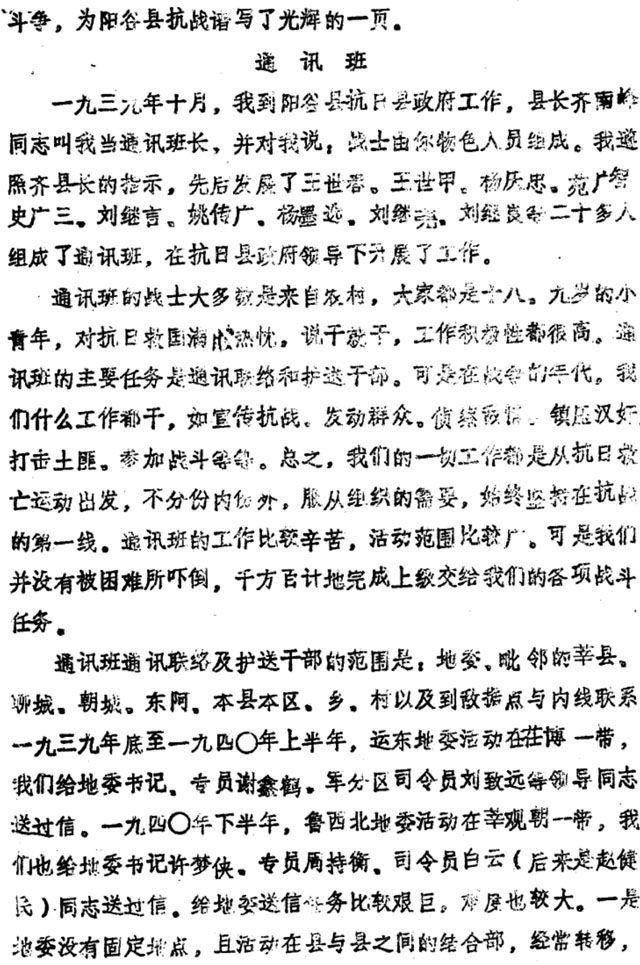 斗争，为阳谷县抗战谱写了光辉的一页。
通讯班
一九三九年十月，我到阳谷县抗日县政府工作，县长齐南峰
同志叫我当通讯班长，并对我说：战士由你物色人员组成。我遵
照齐县长的指示，先后发展了王世春、王世甲、杨庆忠、苑广智
史广三、刘继言、姚传广、杨墨迎、刘继尧、刘继良等二十多人
组成了通讯班，在抗日县政府领导下开展了工作。
通讯班的战士大多数是来自农村，大家都是十八、九岁的小
青年，对抗日救国满腔热忱，说干就干，工作积极性都很高。通
讯班的主要任务是通讯联络和护送干部。可是在战争的年代。我
们什么工作都干，如宣传抗战、发动群众、侦察敌情、镇压汉奸
打击土匪。参加战斗等等。总之，我们的一切工作都是从抗日救
亡运动出发，不分份内份外，服从组织的需要，始终坚持在抗战
的第一线。通讯班的工作比较辛苦，活动范围比较广。可是我们
并没有被困难所吓倒，千方百计地完成上级交给我们的各项战斗
任务。
通讯班通讯联络及护送干部的范围是：地委、毗邻的莘县。
聊城、朝城、东阿、本县本区、乡、村以及到敌据点与内线联系
一九三九年底至一九四〇年上半年，运东地委活动在茌博一带，
我们给地委书记、专员谢鑫鹤、军分区司令员刘致远等领导同志
送过信。一九四〇年下半年，鲁西北地委活动在莘观朝一带，我
们也给地委书记许梦侠、专员周持衡、司令员白云（后来是赵健
民）同志送过信。给地委送信任务比较艰巨，难度也较大。一是
地委没有固定地点，且活动在县与县之间的结合部，经常转移，